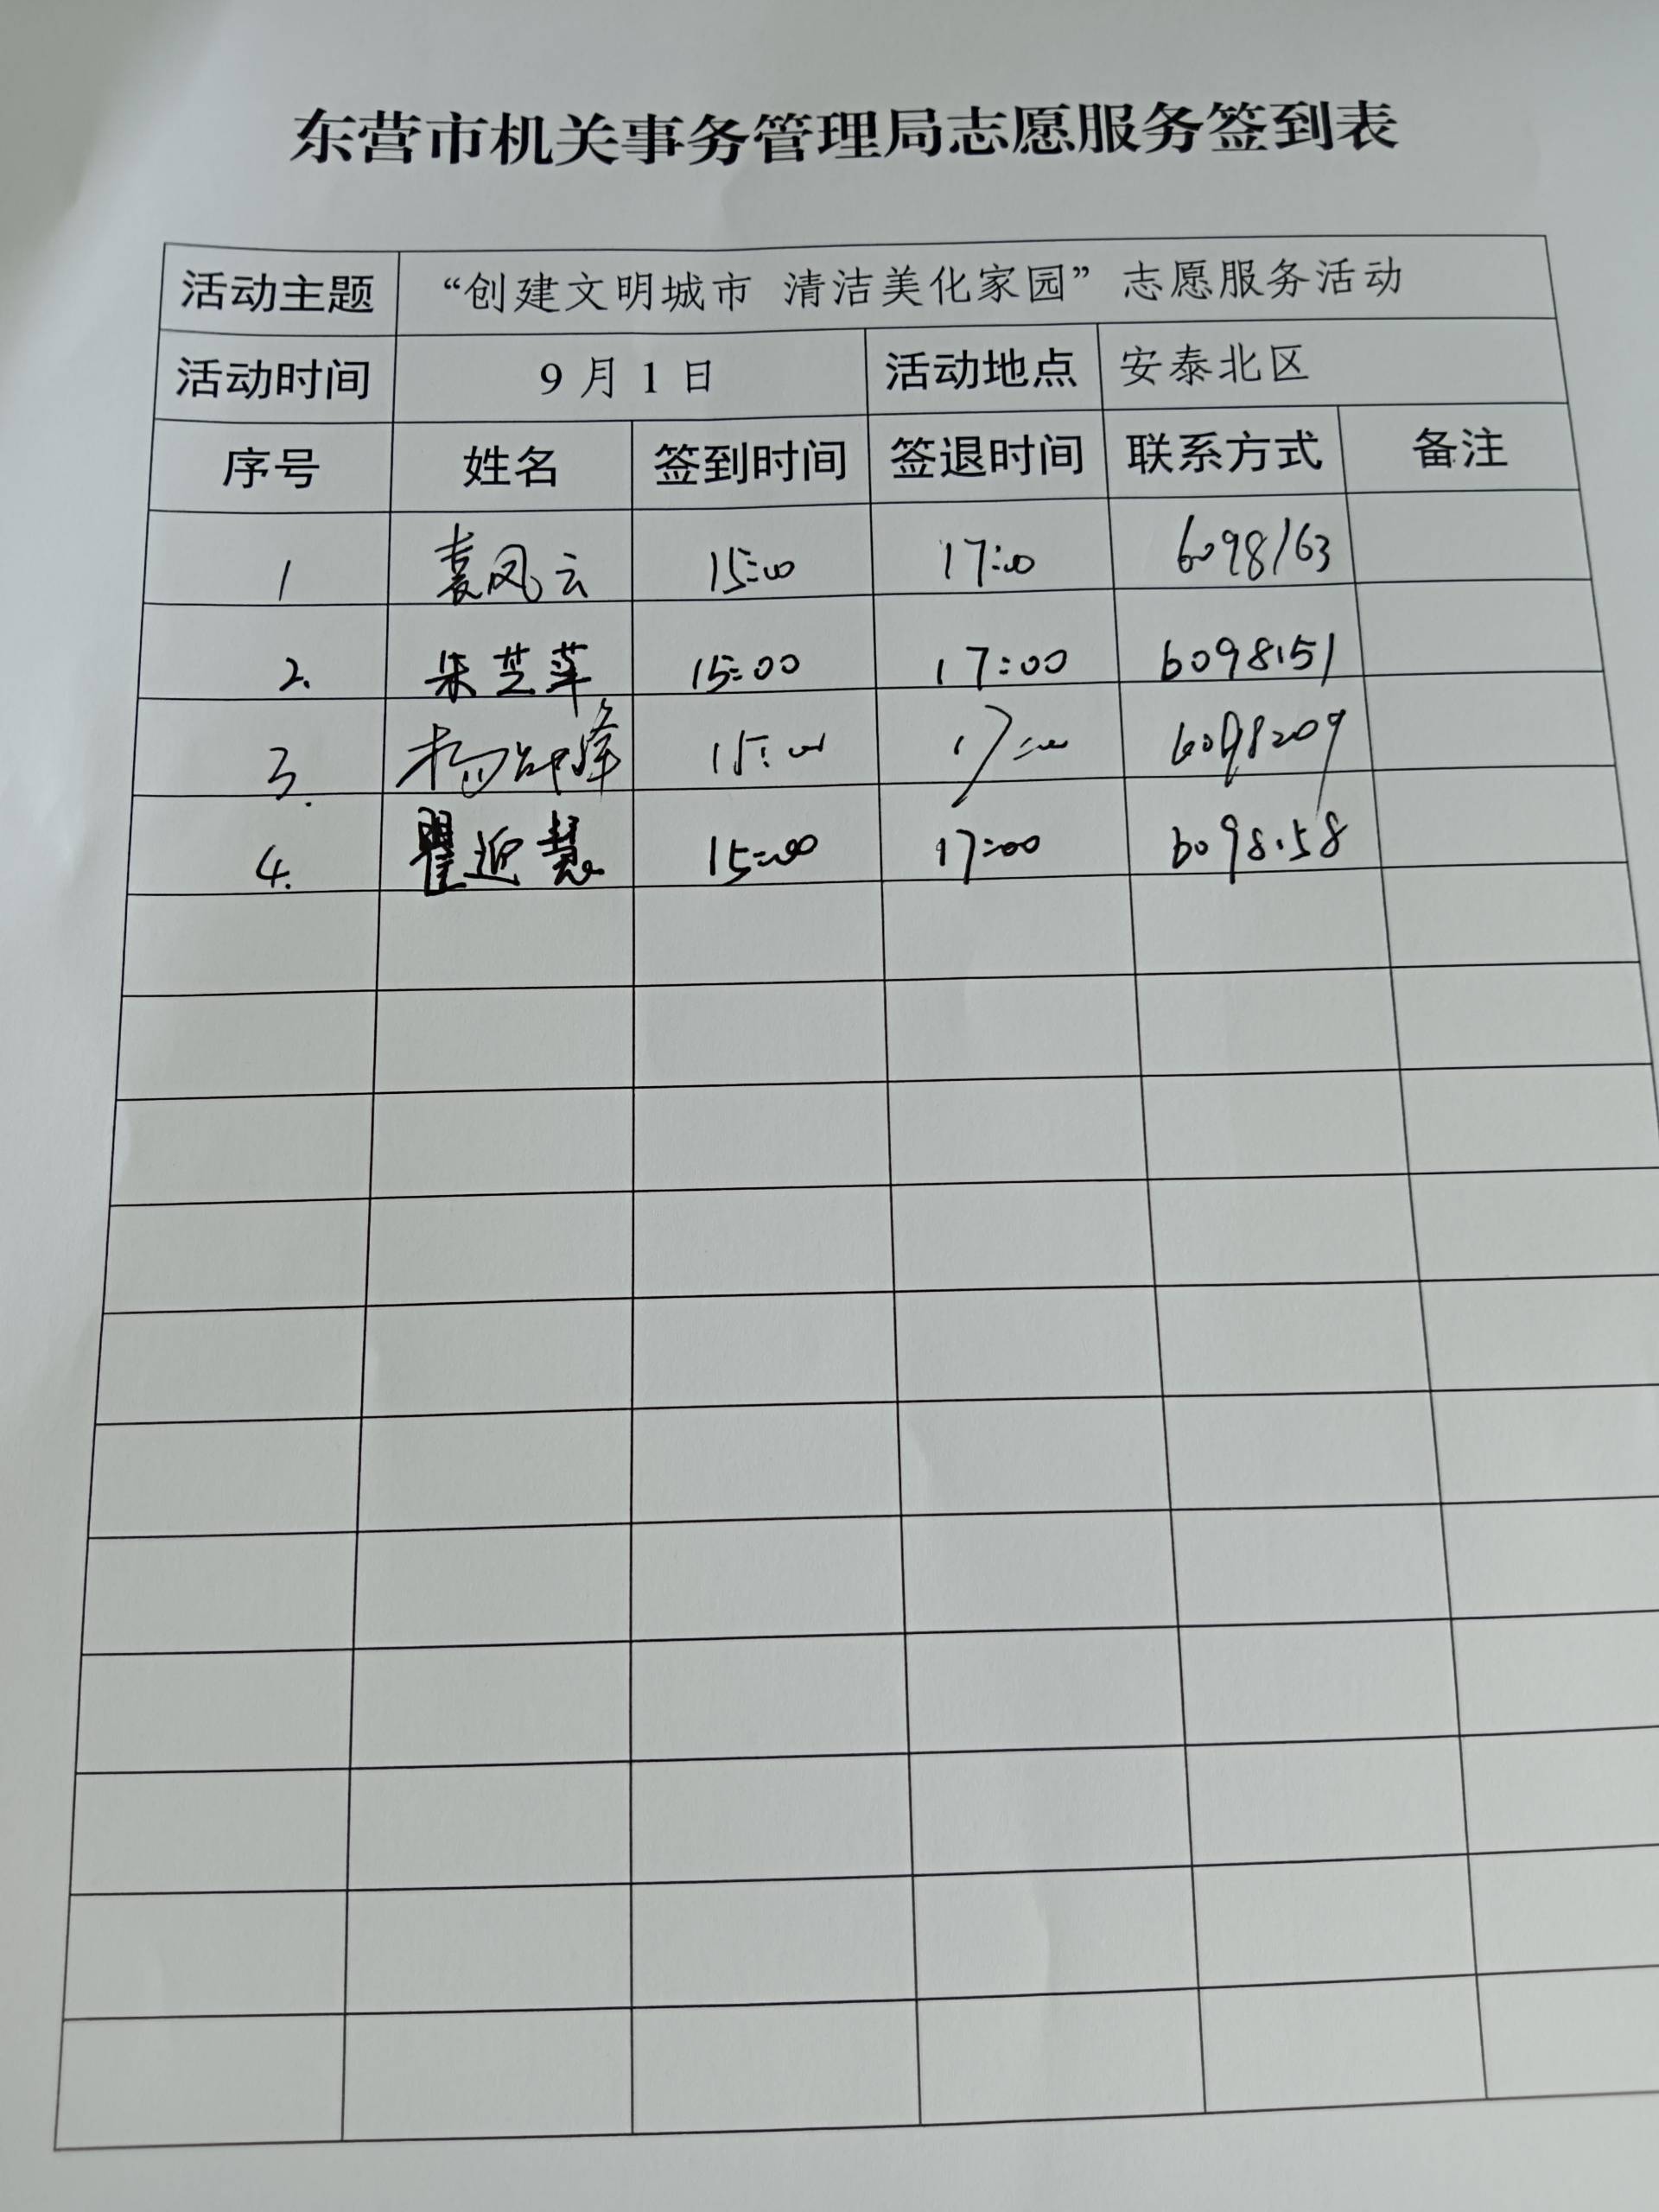 东营市机关事务管理局志愿服务签到表
活动主题 “创建文明城市 清洁美化家园”志愿服务活动
活动时间 9月1日 活动地点 安泰北区
序号 姓名 签到时间 签退时间 联系方式 备注
1 袁凤云 15:00 17:00 6098163
2. 朱芝苹 15:00 17:00 6098151
3. 15:00 17:00 6098209
4. 翟迎慧 15:00 17:00 6098158